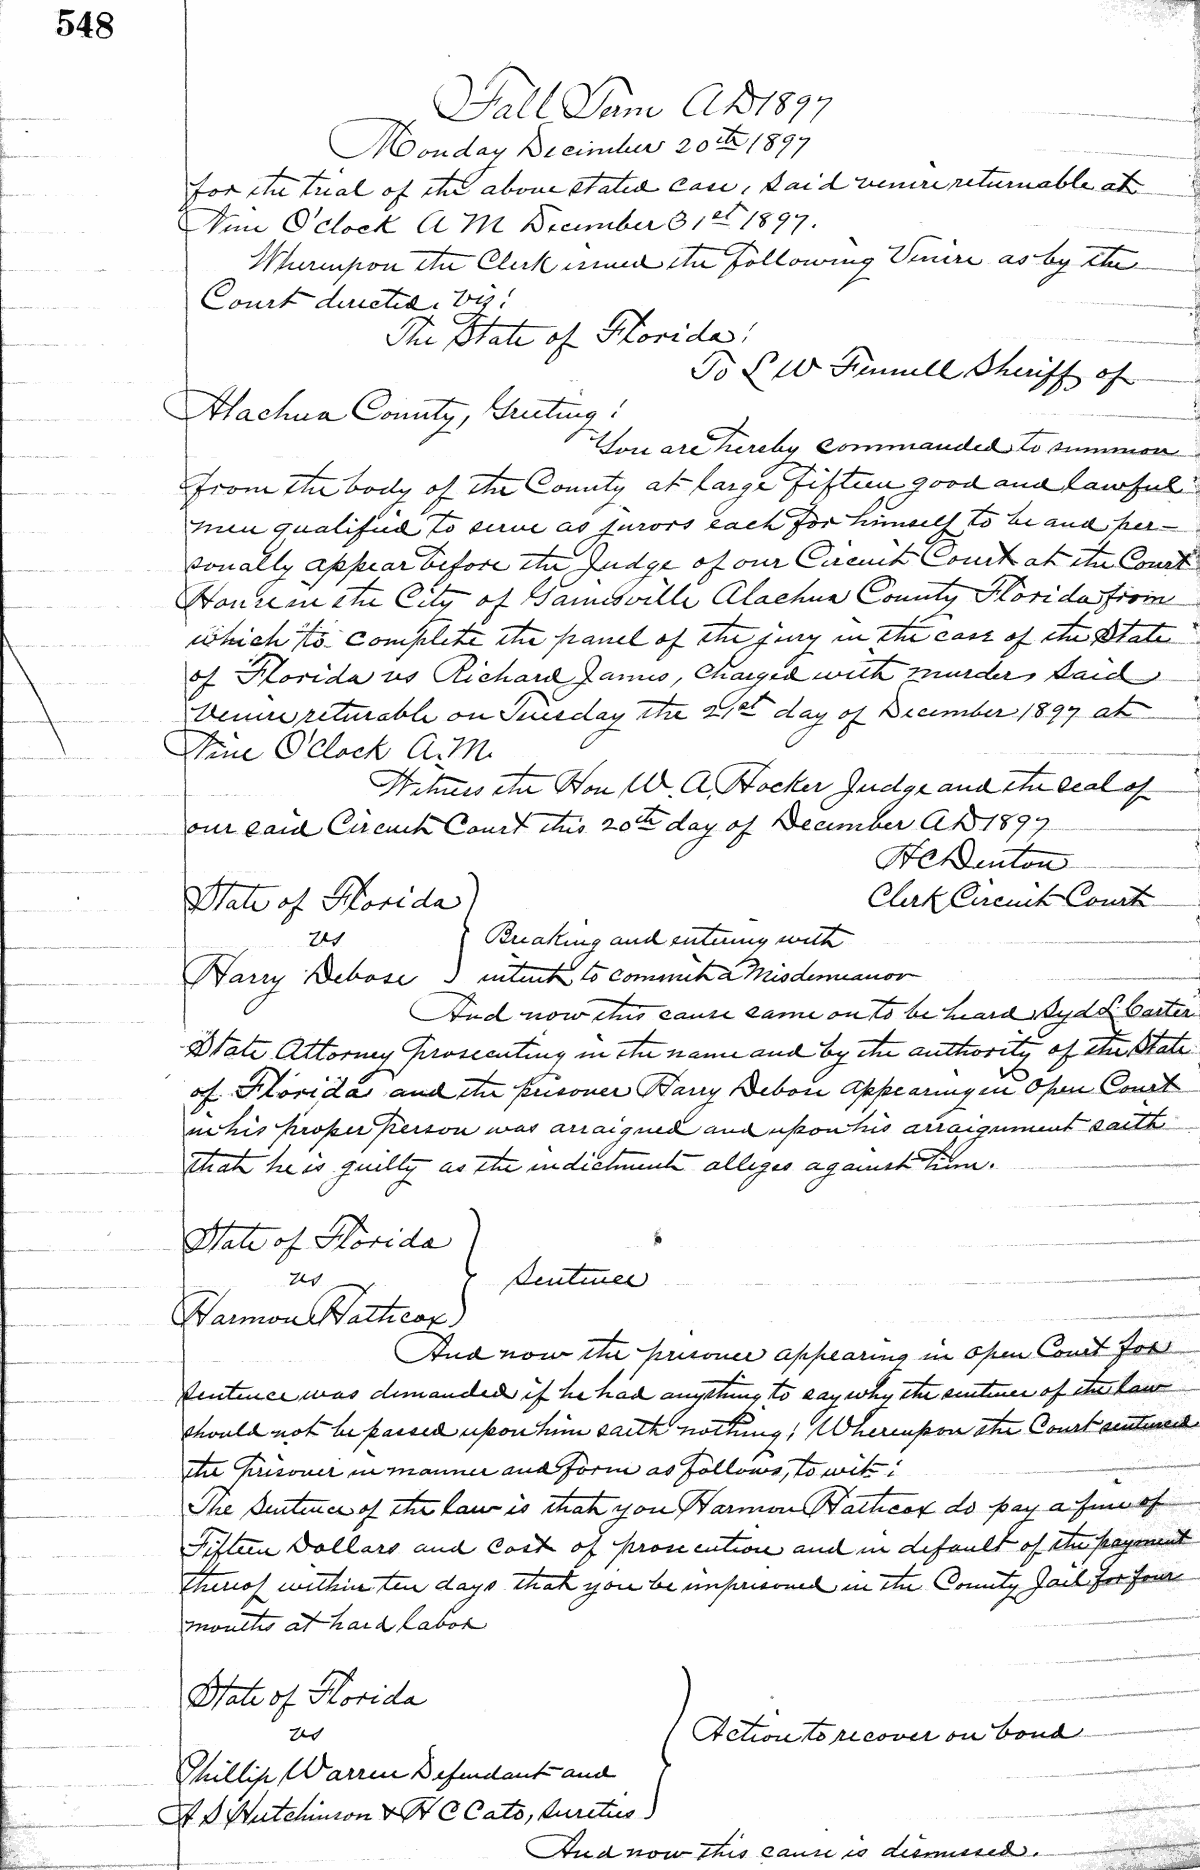 548
Fall Term A D 1897
Monday December 20th 1897
for the trial of the above stated case, said venire returnable at
Nine O'Clock A M December 31st 1897.
Whereupon the Clerk issued the following Venire as by the
Court directed. Viz:
The State of Florida:
To L W Fennell Sheriff of
Alachua County, Greeting:
You are hereby commanded to summon
from the body of the County at large fifteen good and lawful
men qualified to serve as jurors each for himself to be and per-
sonally appear before the Judge of our Circuit Court at the Court
House in the City of Gainesville Alachua County Florida from
which to complete the panel of the jury in the case of the State
of Florida vs Richard James, charged with murder, said
Venire returable on Tuesday the 21st day of December 1897 at
Nine O'Clock A.M.
Witness the Hon W. A. Hocker Judge and the seal of
our said Circuit Court this 20th day of December A D 1897
H C Denton
Clerk Circuit Court
State of Florida
vs
Breaking and entering with
Harry Debose
intent to commit a Misdemeanor
And now this cause came on to be heard Syd L Carter
State Attorney prosecuting in the name and by the authority of the State
of Florida and the prisoner Harry Debose appearing in Open Court
in his proper person was arraigned and upon his arraignment saith
that he is guilty as the indictment alleges against him.
State of Florida
vs
Sentence
Harmon Hathcox
And now the prisoner appearing in open Court for
sentence was demanded if he had anything to say why the sentence of the law
should not be passed upon him saith nothing; Whereupon the Court sentenced
the prisoner in manner and form as follows, to wit:
The Sentence of the law is that you Harmon Hathcox do pay a fine of
Fifteen Dollars and Cost of prosecution and in default of the payment
thereof within ten days that you be imprisoned in the County Jail for four
months at hard labor
State of Florida
vs
Action to recover on bond
Phillip Warren Defendant and
A S Hutchinson & H C Cato, Sureties
And now this cause is dismissed.